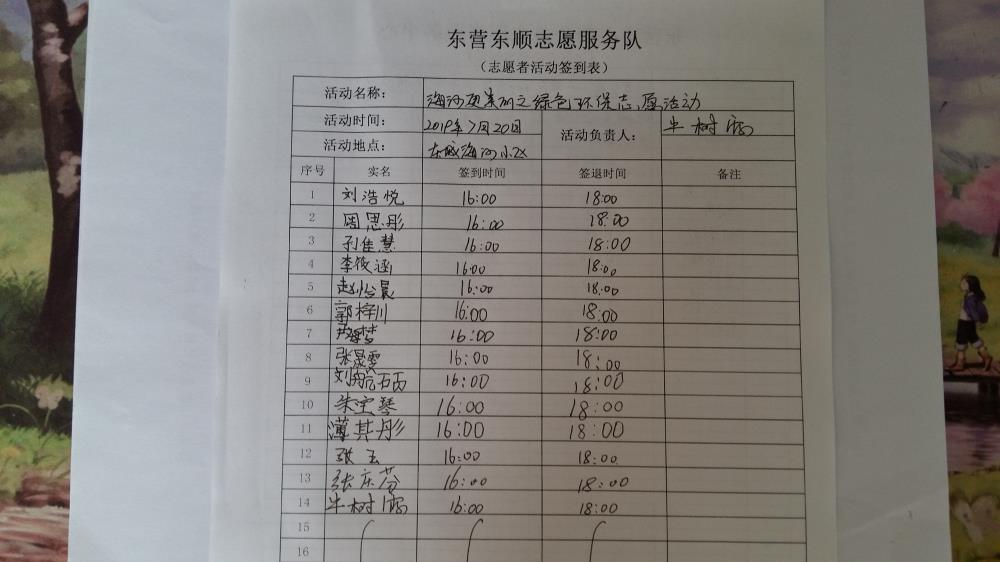 东营东顺志愿服务队
（志愿者活动签到表）
活动名称： 海河夏系列之绿色环保志愿活动
活动时间： 2019年7月20日 活动负责人： 牛树
活动地点： 东城海河小区
序号 实名 签到时间 签退时间 备注
1 刘浩悦 16:00 18:00
2 周思彤 16:00 18:00
3 孙佳慧 16:00 18:00
4 李筱涵 16:00 18:00
5 赵怡晨 16:00 18:00
6 郭梓川 16:00 18:00
7 16:00 18:00
8 张晟雯 16:00 18:00
9 刘航 16:00 18:00
10 朱宝琴 16:00 18:00
11 薄其彤 16:00 18:00
12 张玉 16:00 18:00
13 张庆芬 16:00 18:00
14 牛树 16:00 18:00
15
16